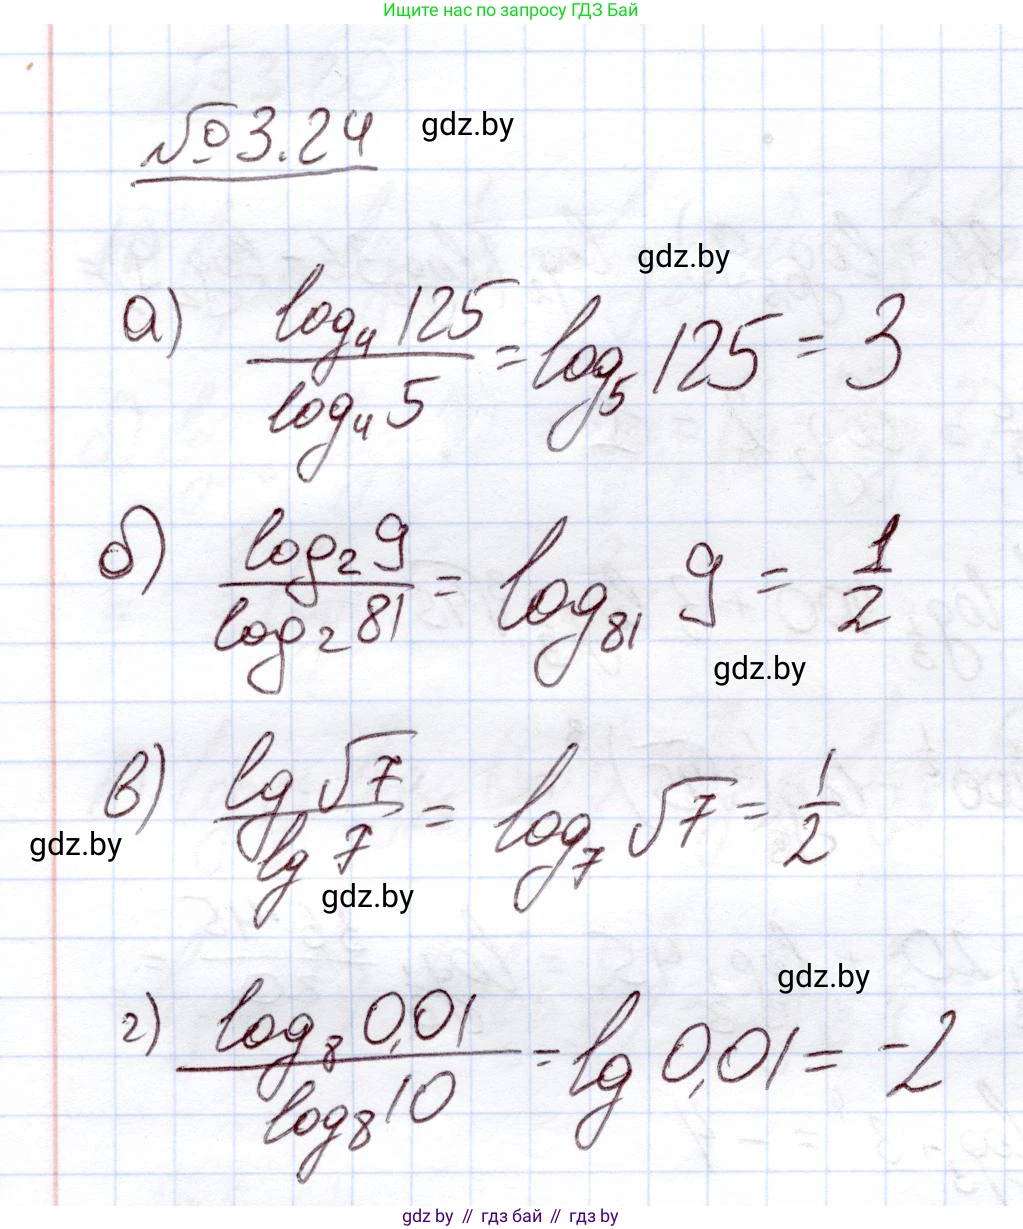 Ищите нас по запросу ГДЗ Бай
№3.24 gdz.by
gdz.by
а) log₄ 125 / log₄ 5 = log₅ 125 = 3
б) log₂ 9 / log₂ 81 = log₈₁ 9 = 1/2
gdz.by
в) lg √7 / lg 7 = log₇ √7 = 1/2
gdz.by
gdz.by
gdz.by
г) log₈ 0,01 / log₈ 10 = lg 0,01 = -2
gdz.by // гдз бай // gdz.by